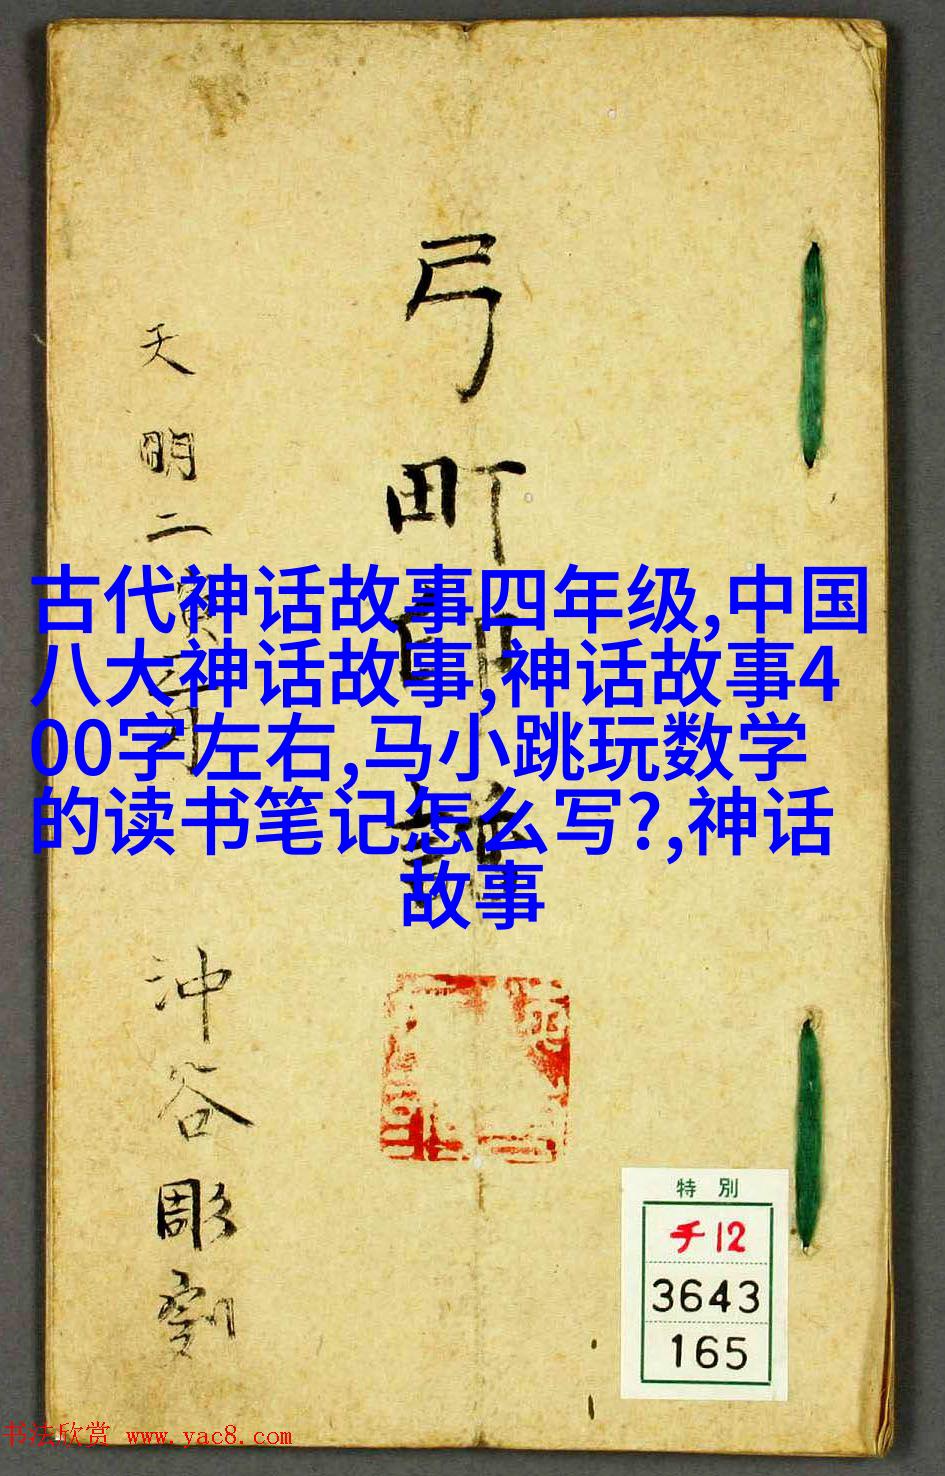 弓町印
天明二寅
沖谷彫刻
古代神话故事四年级,中国
八大神话故事,神话故事4
00字左右,马小跳玩数学
的读书笔记怎么写?,神话
故事
特別
チ12
3643
165
书法欣赏 www.yac8.com